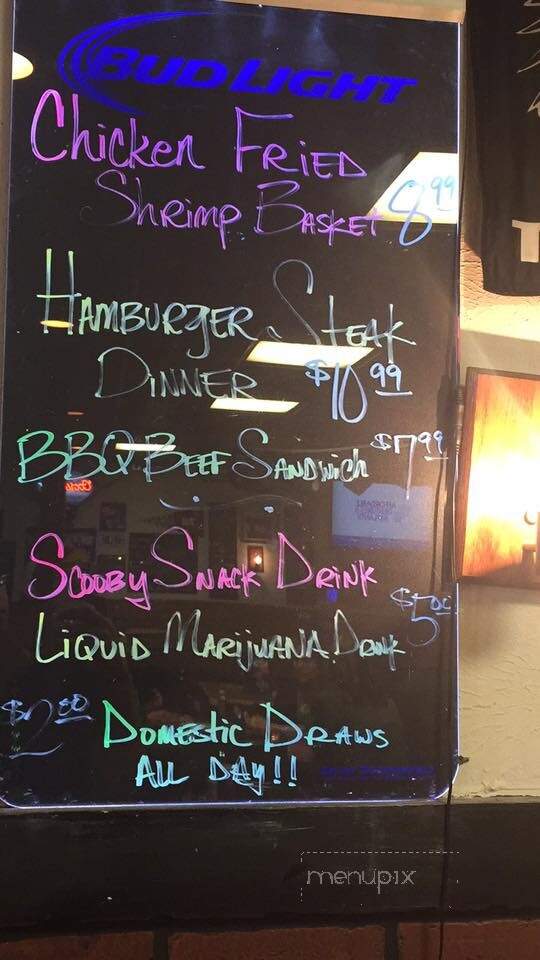 BUD LIGHT
Chicken FRIED
SHRIMP BASKET 8.99
HAMBURGER STEAK
DINNER $10.99
BBQ BEEF SANDWICH $7.99
SCOOBY SNACK DRINK
$5.00
LIQUID MARIJUANA DRINK
$2.00 DOMESTIC DRAWS
ALL DAY!!
T
menupix